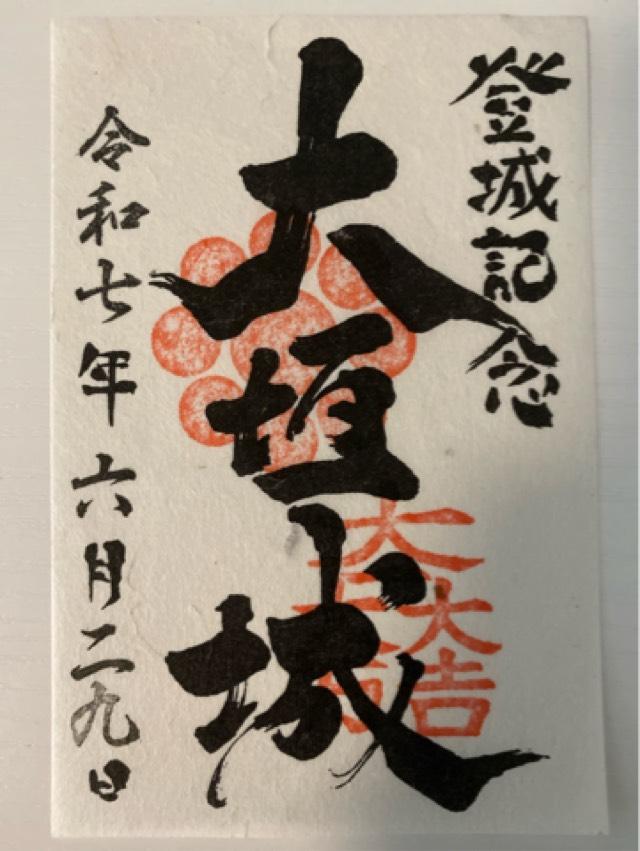 登城記念
大垣城
令和七年六月二九日
大一大万大吉